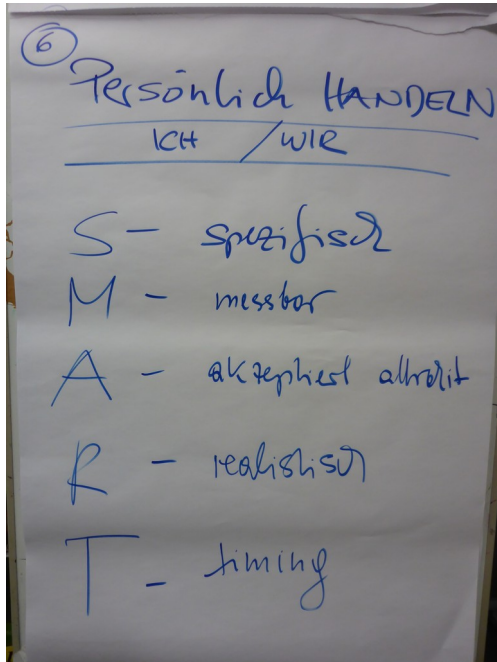 6
Persönlich HANDELN
ICH / WIR
S - spezifisch
M - messbar
A - akzeptiert attraktiv
R - realistisch
T - timing